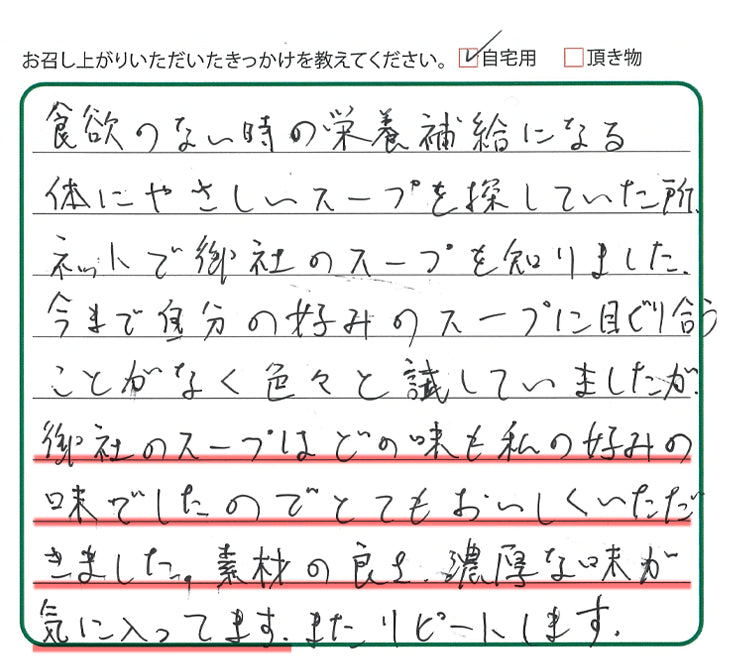 お召し上がりいただいたきっかけを教えてください。 ☑自宅用 □頂き物
食欲のない時の栄養補給になる
体にやさしいスープを探していた所、
ネットで御社のスープを知りました。
今まで自分の好みのスープに目ぐり合う
ことがなく色々と試していましたが、
御社のスープはどの味も私の好みの
味でしたのでとてもおいしくいただ
きました。素材の良さ、濃厚な味が
気に入ってます。またリピートします。